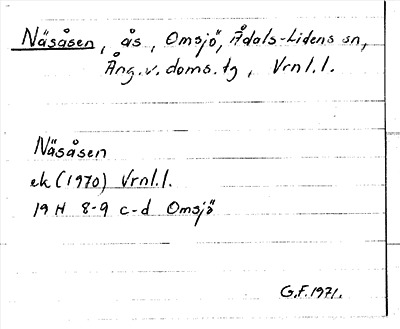 Näsåsen, ås, Omsjö, Ådals-Lidens sn,
Ång. v. doms. tg, Vrnl. l.
Näsåsen
ek (1970) Vrnl. l.
19 H 8-9 c-d Omsjö
G.F. 1971.